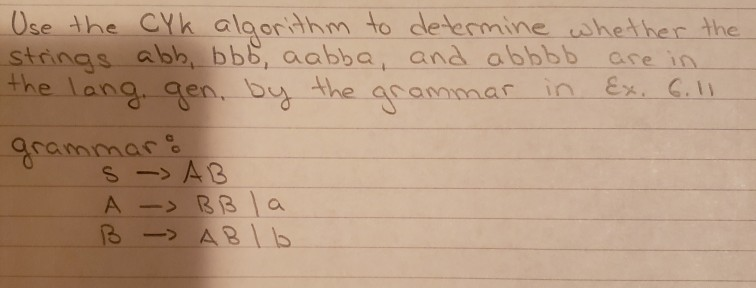 Use the CYK algorithm to determine whether the
strings abb, bbb, aabba, and abbbb are in
the lang. gen. by the grammar in Ex. 6.11
grammar:
S -> AB
A -> BB | a
B -> AB | b